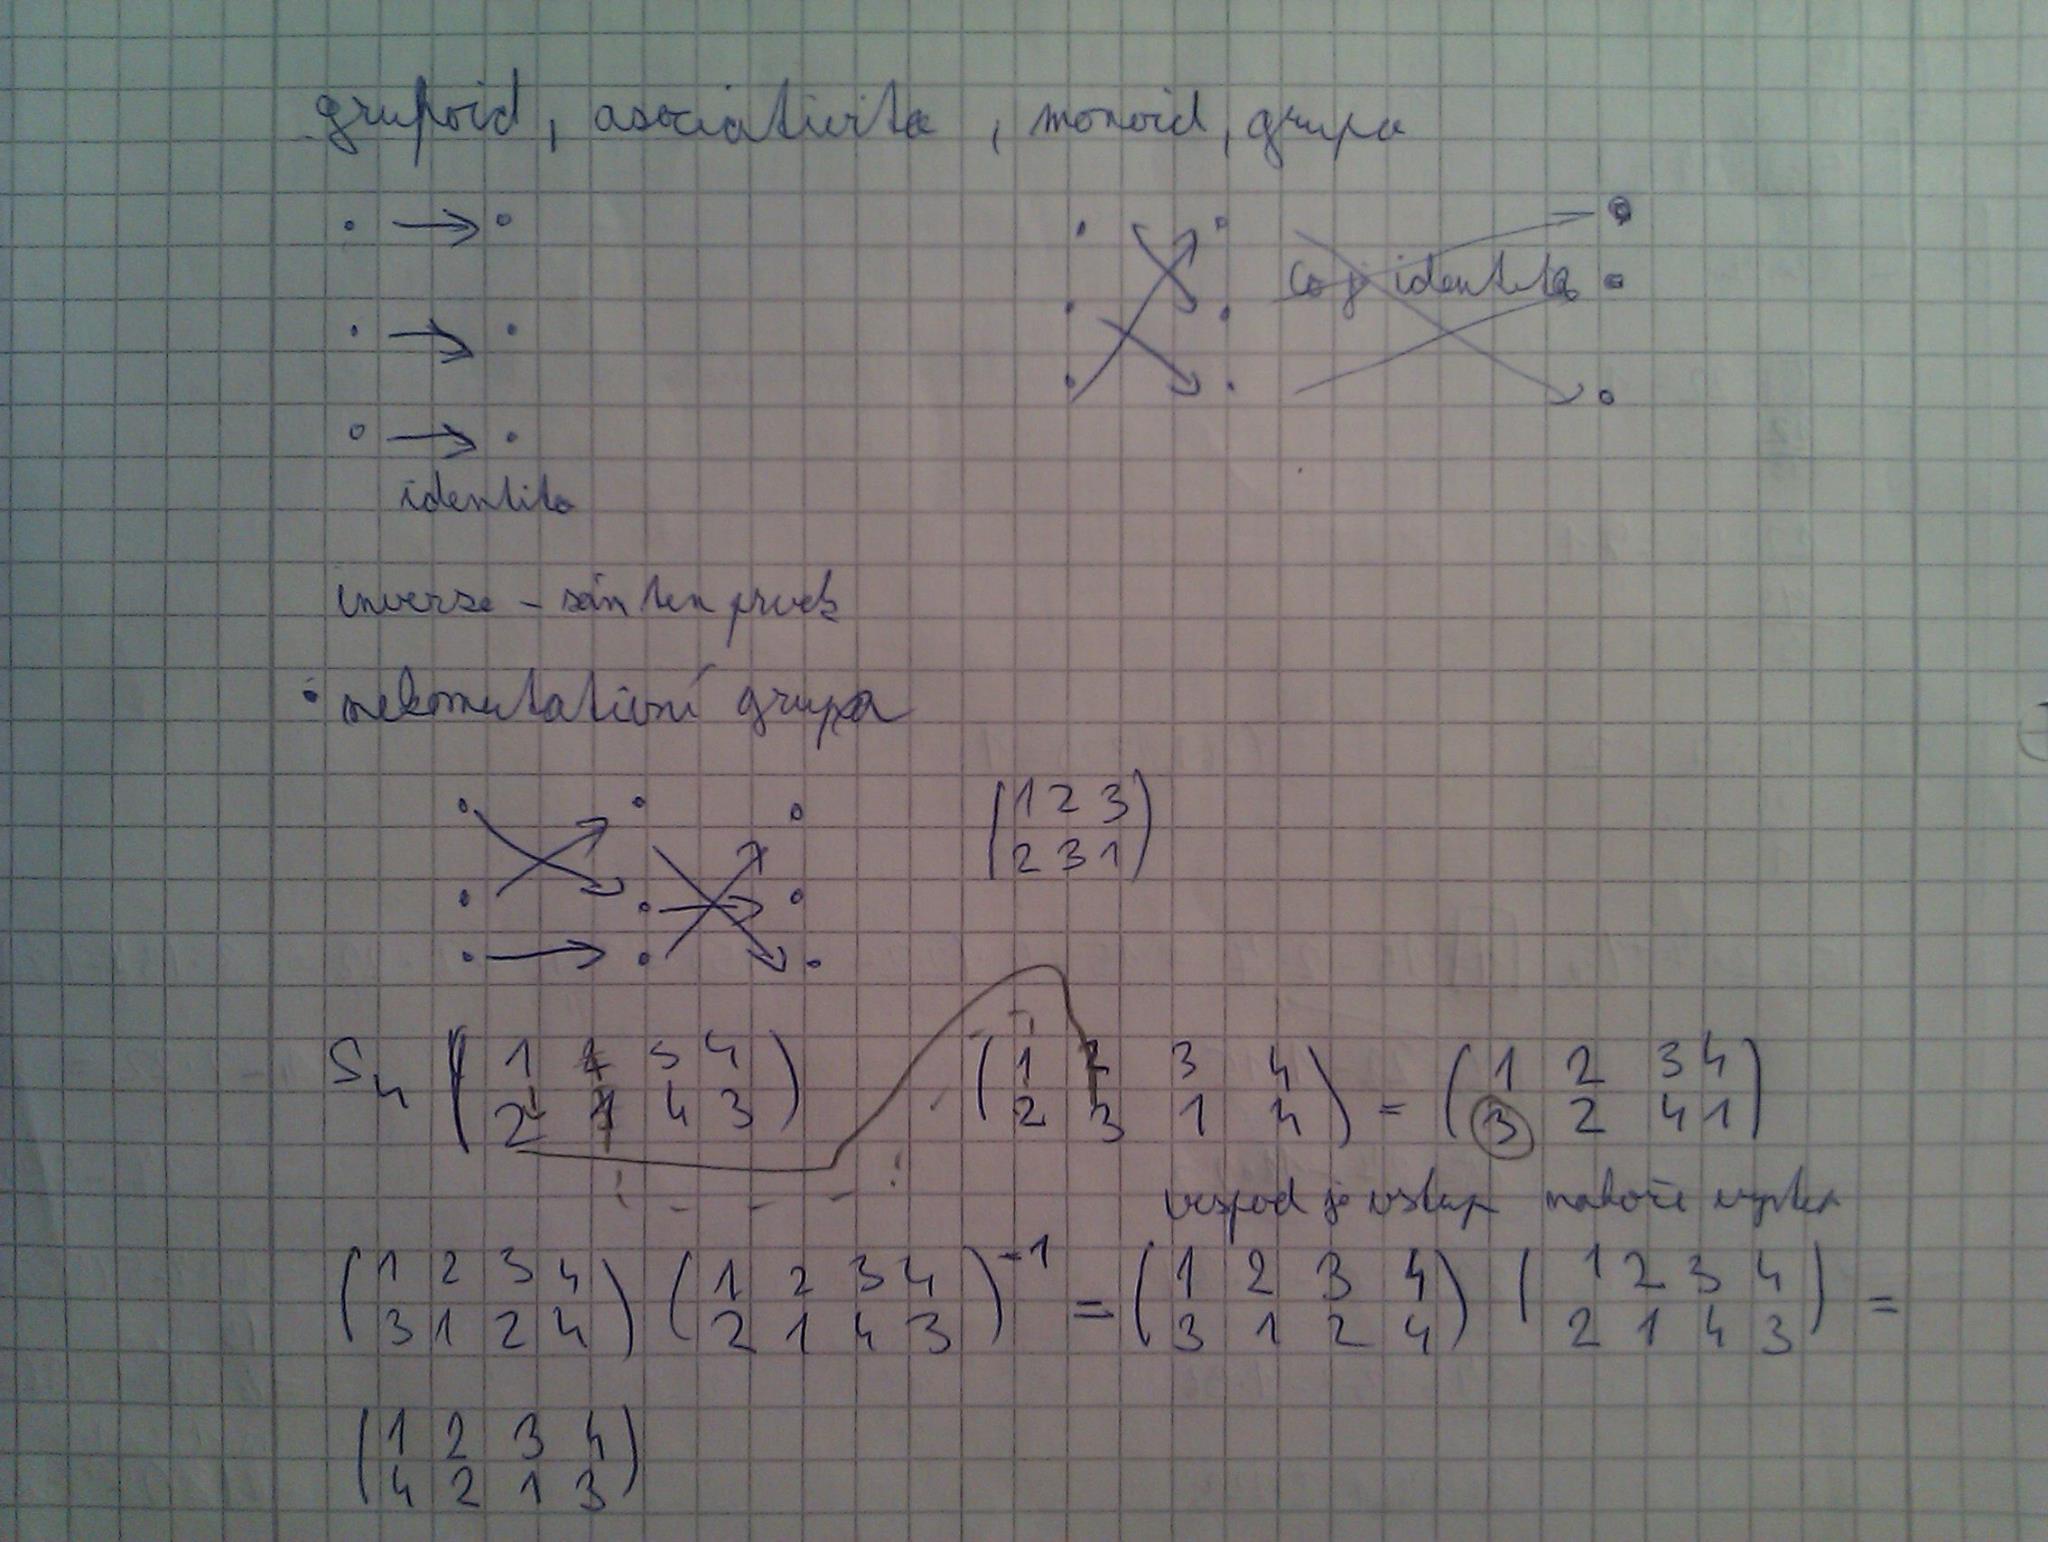 grupoid, asociativita, monoid, grupa
co je identita
identita
inverze - sám ten prvek
• nekomutativní grupa
(1 2 3)
(2 3 1)
S4 (1 3 4) (1 2 3 4) = (1 2 3 4)
(2 1 4 3) (2 3 1 4) (3 2 4 1)
vespod je vstup nahoře výstup
(1 2 3 4) (1 2 3 4)-1 = (1 2 3 4) (1 2 3 4) =
(3 1 2 4) (2 1 4 3) (3 1 2 4) (2 1 4 3)
(1 2 3 4)
(4 2 1 3)